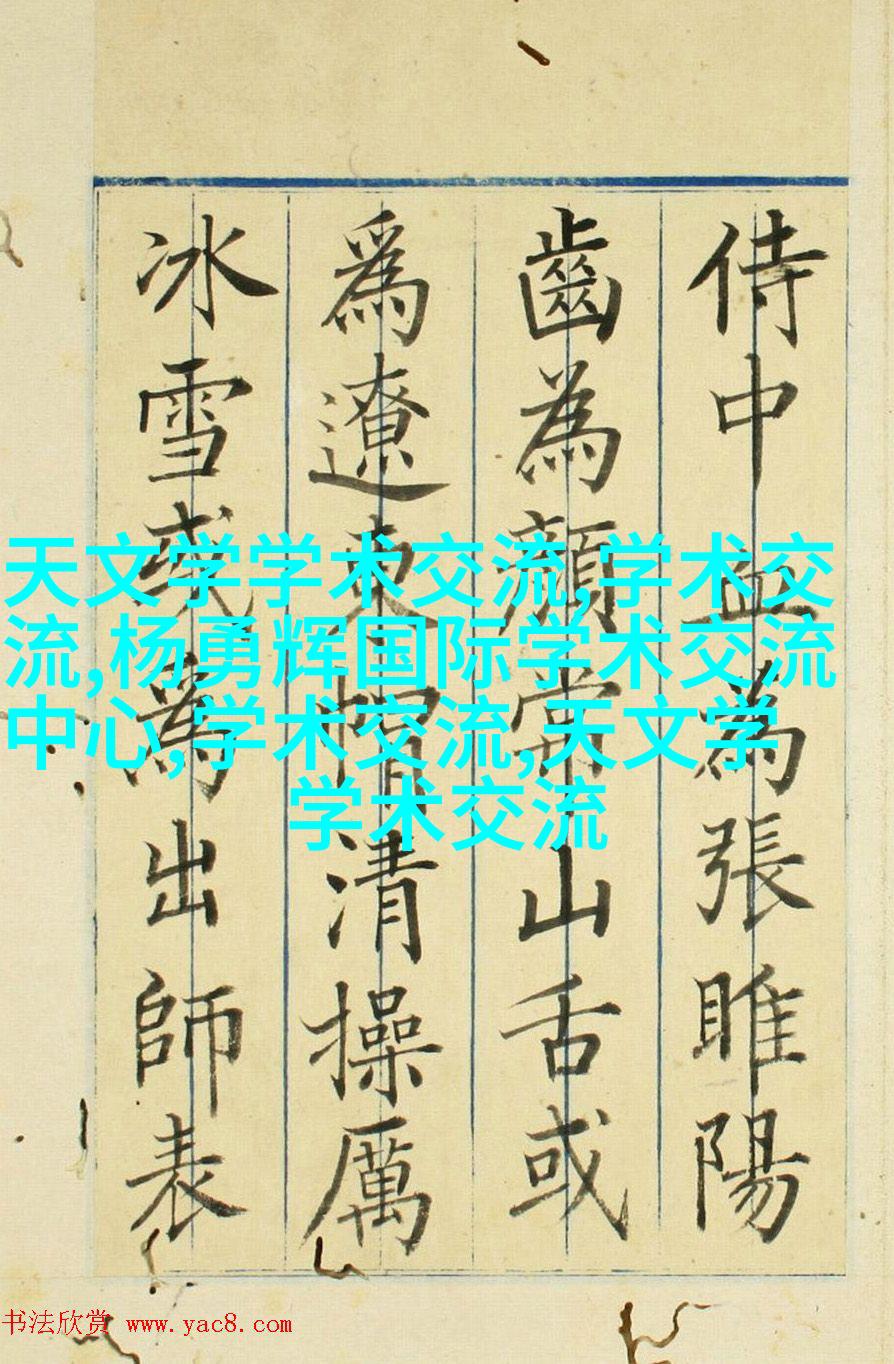 侍中血為張睢陽
齒為顏常山舌或
爲遼東帽清操厲
冰雪或為出師表
天文学学术交流,学术交
流,杨勇辉国际学术交流
中心,学术交流,天文学
学术交流
书法欣赏 www.yac8.com